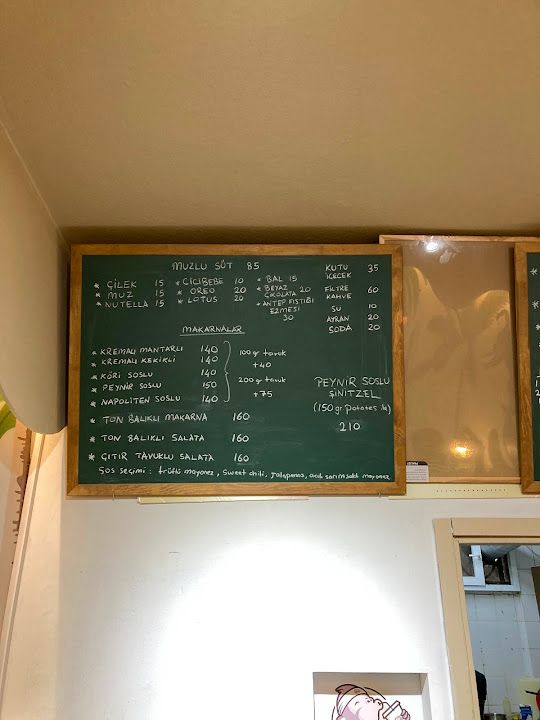 MUZLU SÜT 85
* ÇİLEK 15
* MUZ 15
* NUTELLA 15
* CİCİBEBE 10
* OREO 20
* LOTUS 20
* BAL 15
* BEYAZ
ÇİKOLATA 20
* ANTEP FISTIĞI
EZMESİ
30
KUTU 35
İÇECEK
FİLTRE 60
KAHVE
SU 10
AYRAN 20
SODA 20
MAKARNALAR
* KREMALI MANTARLI 140
* KREMALI KEKİKLİ 140
* KÖRİ SOSLU 140
* PEYNİR SOSLU 150
* NAPOLİTEN SOSLU 140
100 gr tavuk
+40
200 gr tavuk
+75
* TON BALIKLI MAKARNA 160
* TON BALIKLI SALATA 160
* ÇITIR TAVUKLU SALATA 160
Sos seçimi: trüflü mayonez, sweet chili, jalapenos, acılı sarımsaklı mayonez
PEYNİR SOSLU
ŞİNİTZEL
(150 gr patates ile)
210